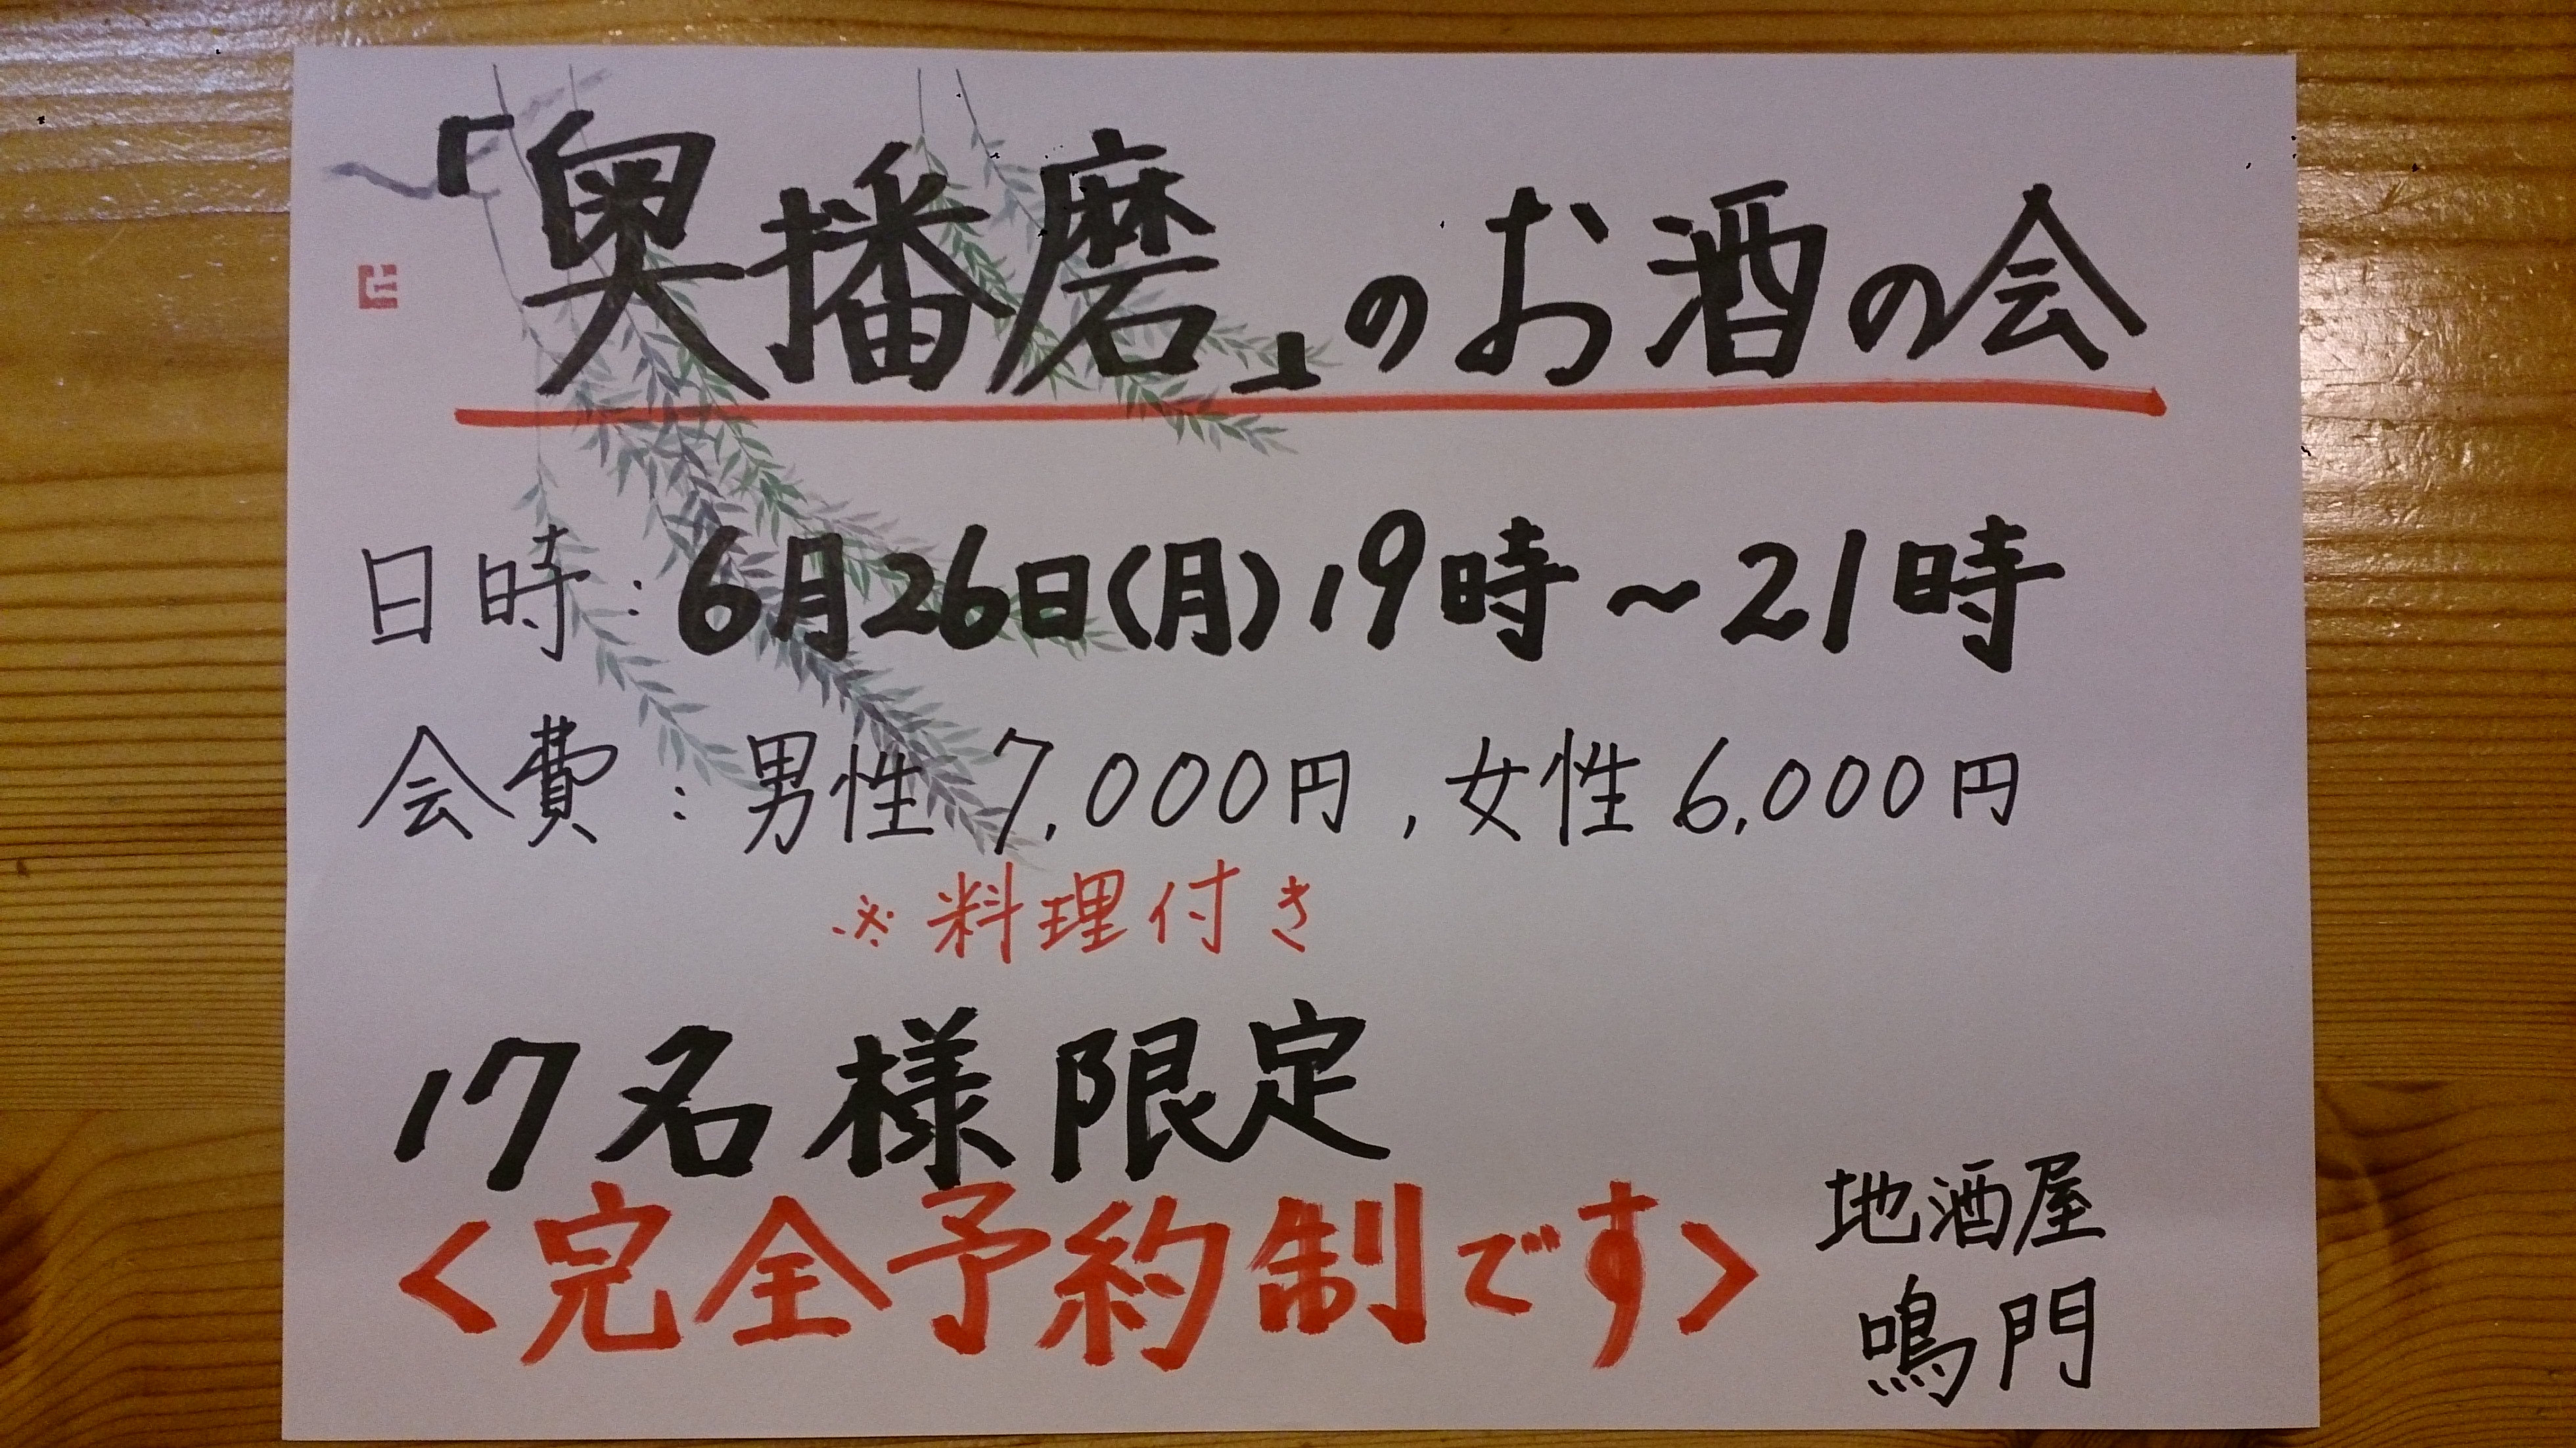 「奥播磨」のお酒の会
日時:6月26日(月)19時~21時
会費:男性 7,000円,女性 6,000円
※料理付き
17名様限定
<完全予約制です>
地酒屋
鳴門